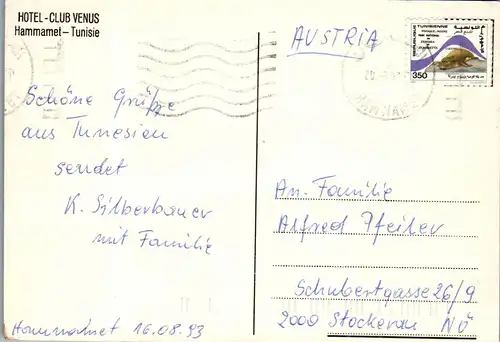 HOTEL-CLUB VENUS
Hammamet - Tunisie
AUSTRIA
350
Schöne Grüße
aus Tunesien
sendet
K. Silberbauer
mit Familie
Hammamet 16.08.93
An Familie
Alfred Pfeiler
Schubertgasse 26/9
2000 Stockerau NÖ